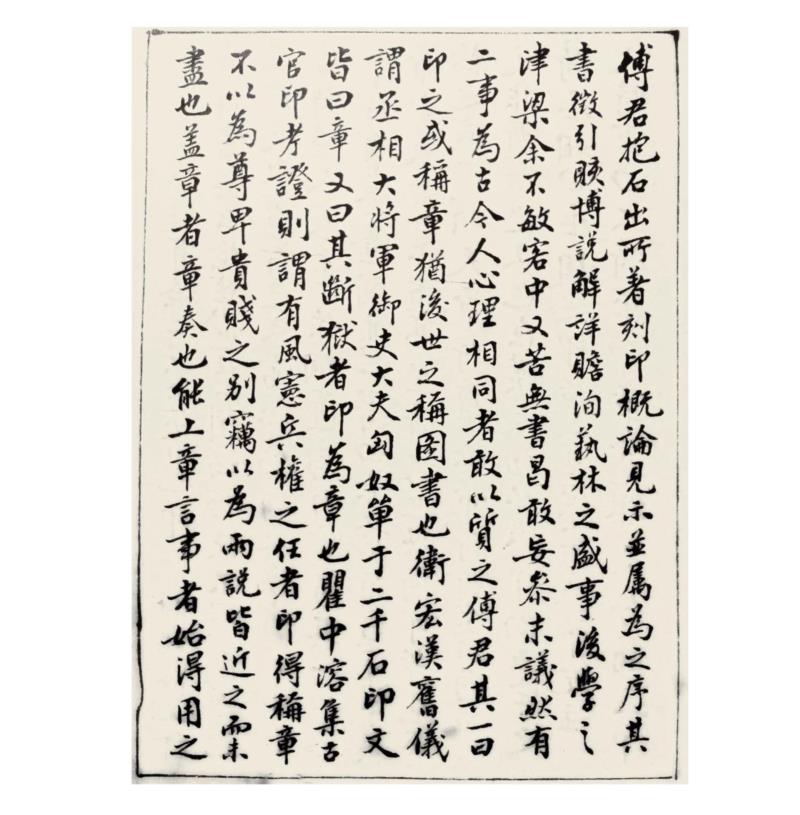 傅君抱石出所著刻印概論見示並属為之序其
書徵引賅博説解詳贍洵藝林之盛事後學之
津梁余不敏客中又苦無書曷敢妄參末議然有
二事為古今人心理相同者敢以質之傅君其一曰
印之或稱章猶後世之稱圖書也衛宏漢舊儀
謂丞相大將軍御史大夫匈奴單于二千石印文
皆曰章又曰其斷獄者印為章也瞿中溶集古
官印考證則謂有風憲兵權之任者印得稱章
不以為尊卑貴賤之别竊以為兩説皆近之而未
盡也盖章者章奏也能上章言事者始得用之